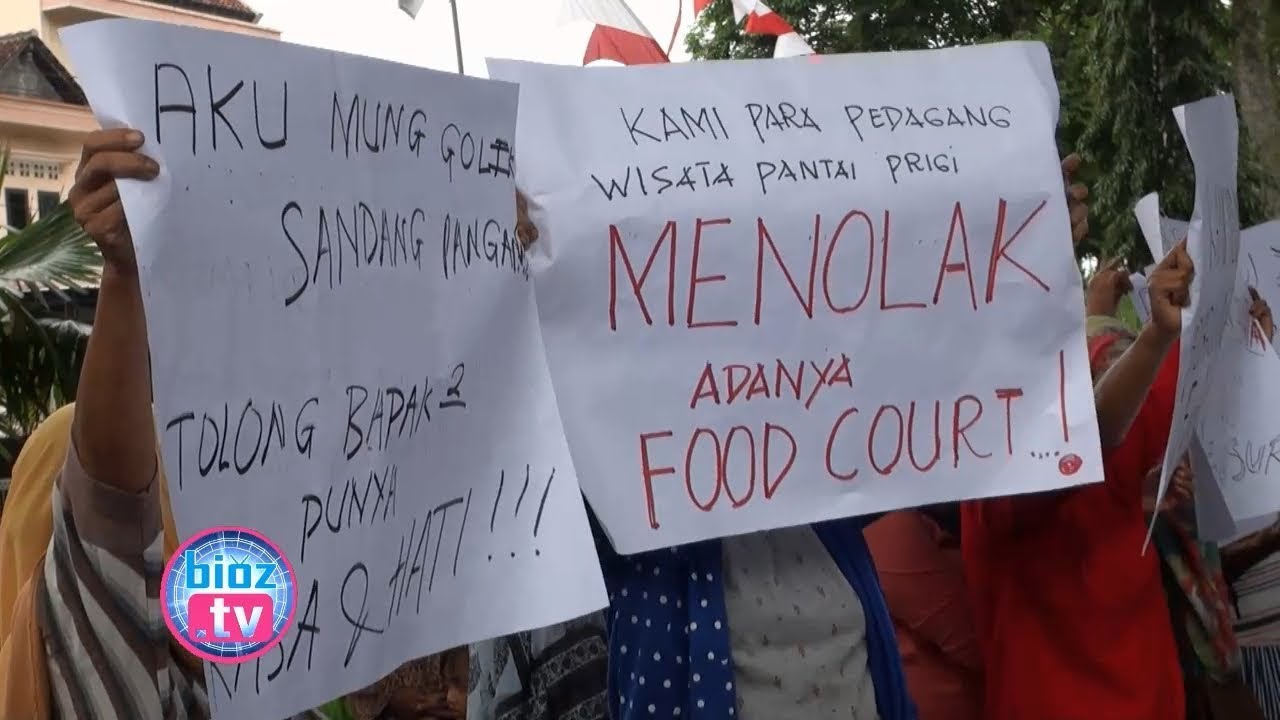 AKU MUNG GOLEK
SANDANG PANGAN
TOLONG BAPAK2
PUNYA
RASA & HATI !!!
KAMI PARA PEDAGANG
WISATA PANTAI PRIGI
MENOLAK
ADANYA
FOOD COURT....!
bioz
.tv